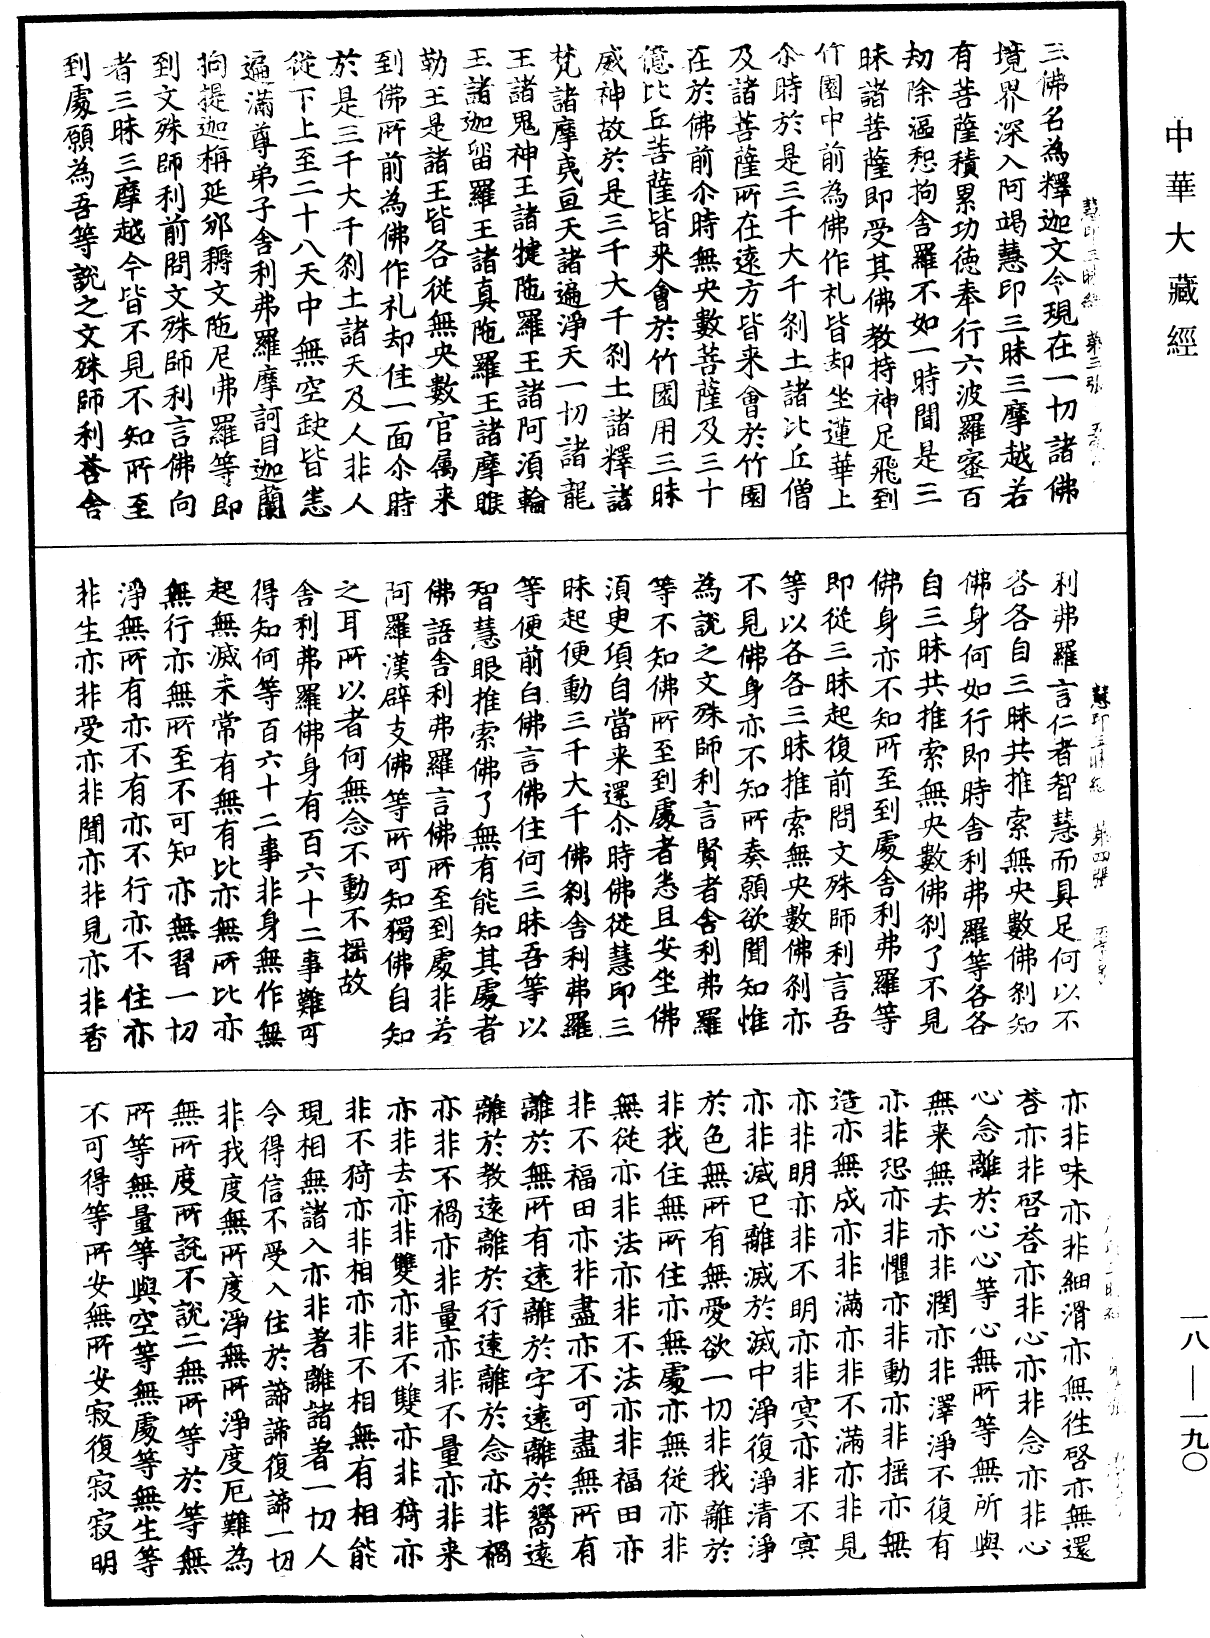 中華大藏經
三佛名為釋迦文令現在一切諸佛
境界深入阿竭慧印三昧三摩越若
有菩薩積累功德奉行六波羅蜜百
劫除漚惒拘舍羅不如一時聞是三
昧諸菩薩即受其佛教持神足飛到
竹園中前為佛作礼皆却坐蓮華上
尒時於是三千大千剎土諸比丘僧
及諸菩薩所在遠方皆来會於竹園
在於佛前尒時無央數菩薩及三十
億比丘菩薩皆来會於竹園用三昧
威神故於是三千大千剎土諸釋諸
梵諸摩夷亘天諸遍淨天一切諸龍
王諸鬼神王諸揵陁羅王諸阿湏輪
王諸迦留羅王諸真陁羅王諸摩睺
勒王是諸王皆各從無央數官属来
到佛所前為佛作礼却住一面尒時
於是三千大千剎土諸天及人非人
從下上至二十八天中無空缺皆悉
遍滿尊弟子舍利弗羅摩訶目迦蘭
拘提迦栴延邠耨文陁尼弗羅等即
到文殊師利前問文殊師利言佛向
者三昧三摩越今皆不見不知所至
到處願為吾等說之文殊師利荅舍
利弗羅言仁者智慧而具足何以不
各各自三昧共推索無央數佛剎知
佛身何如行即時舍利弗羅等各各
自三昧共推索無央數佛剎了不見
佛身亦不知所至到處舍利弗羅等
即從三昧起復前問文殊師利言吾
等以各各三昧推索無央數佛剎亦
不見佛身亦不知所奏願欲聞知惟
為說之文殊師利言賢者舍利弗羅
等不知佛所至到處者悉且安坐佛
須臾頃自當来還尒時佛從慧印三
昧起便動三千大千佛剎舍利弗羅
等便前白佛言佛住何三昧吾等以
智慧眼推索佛了無有能知其處者
佛語舍利弗羅言佛所至到處非若
阿羅漢辟支佛等所可知獨佛自知
之耳所以者何無念不動不揺故
舍利弗羅佛身有百六十二事難可
得知何等百六十二事非身無作無
起無滅未常有無有比亦無所比亦
無行亦無所至不可知亦無習一切
淨無所有亦不有亦不行亦不住亦
非生亦非受亦非聞亦非見亦非香
亦非味亦非細滑亦無徃啓亦無還
荅亦非啓荅亦非心亦非念亦非心
心念離於心心等心無所等無所與
無来無去亦非潤亦非澤淨不復有
亦非恐亦非懼亦非動亦非揺亦無
造亦無成亦非滿亦非不滿亦非見
亦非明亦非不明亦非㝠亦非不㝠
亦非滅已離滅於滅中淨復淨清淨
於色無所有無愛欲一切非我離於
非我住無所住亦無處亦無從亦非
無從亦非法亦非不法亦非福田亦
非不福田亦非盡亦不可盡無所有
離於無所有遠離於字遠離於嚮遠
離於教遠離於行遠離於念亦非禍
亦非不禍亦非量亦非不量亦非来
亦非去亦非雙亦非不雙亦非猗亦
非不猗亦非相亦非不相無有相能
現相無諸入亦非著離諸著一切人
令得信不受入住於諦諦復諦一切
非我度無所度淨無所淨度厄難為
無所度所説不說二無所等於等無
所等無量等與空等無處等無生等
不可得等所安無所安寂復寂寂明
一八—一九〇